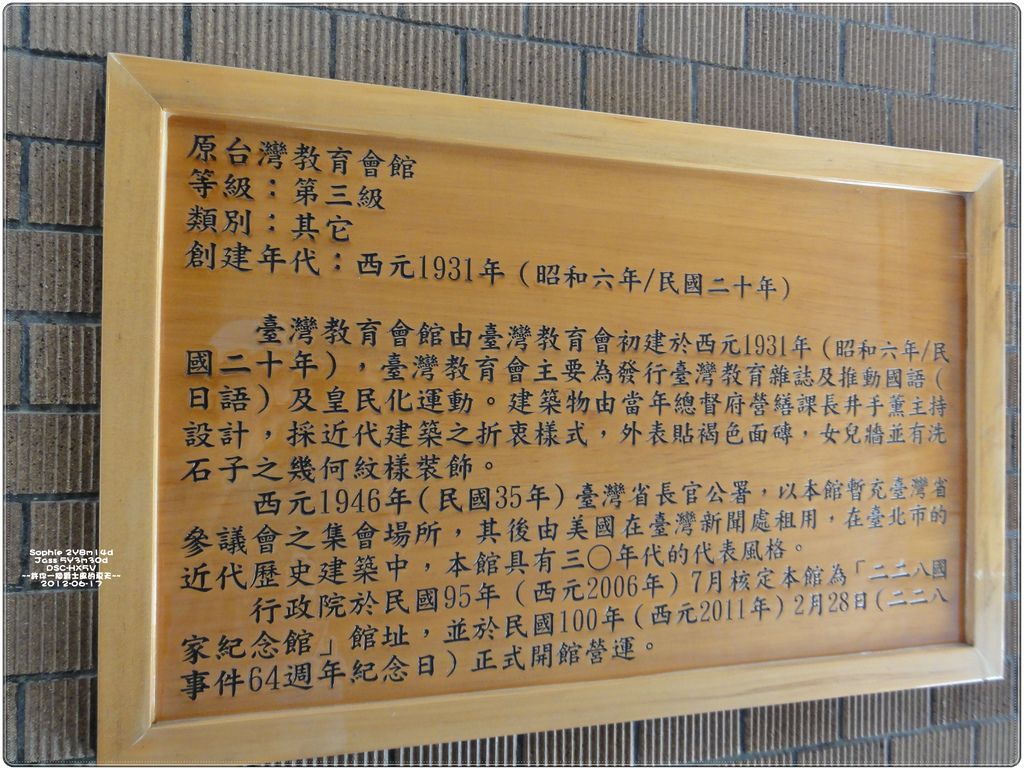 原台灣教育會館
等級：第三級
類別：其它
創建年代：西元1931年（昭和六年/民國二十年）
臺灣教育會館由臺灣教育會初建於西元1931年（昭和六年/民
國二十年），臺灣教育會主要為發行臺灣教育雜誌及推動國語（
日語）及皇民化運動。建築物由當年總督府營繕課長井手薰主持
設計，採近代建築之折衷樣式，外表貼褐色面磚，女兒牆並有洗
石子之幾何紋樣裝飾。
西元1946年(民國35年）臺灣省長官公署，以本館暫充臺灣省
參議會之集會場所，其後由美國在臺灣新聞處租用，在臺北市的
近代歷史建築中，本館具有三〇年代的代表風格。
行政院於民國95年（西元2006年）7月核定本館為「二二八國
家紀念館」館址，並於民國100年（西元2011年）2月28日(二二八
事件64週年紀念日）正式開館營運。
Sophie 2Y8m14d
Jass 5Y3m30d
DSC-HX5V
~~許你一個爵士風的夏天~~
2012-06-17